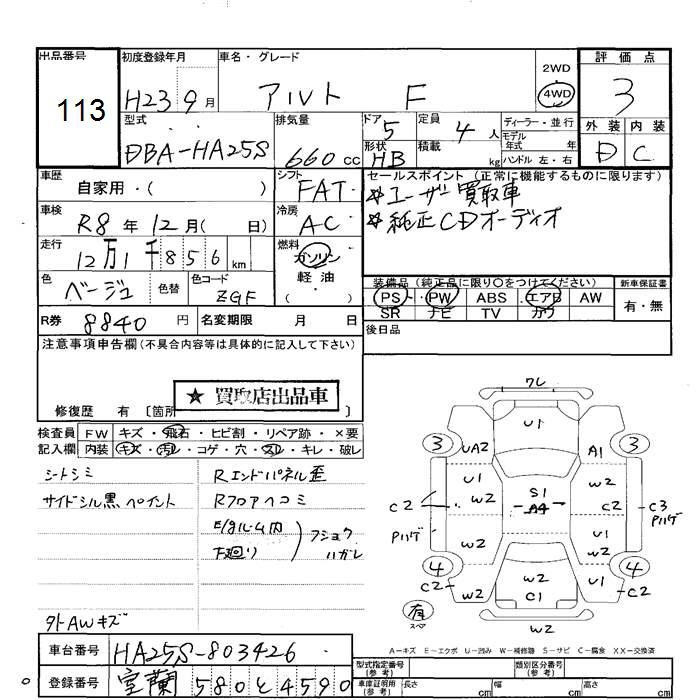 出品番号 初度登録年月 車名・グレード 2WD 評価点
113 H23 9月 アルト F 4WD 3
外装 内装
D C
型式 排気量 ドア 定員 ディーラー・並行
DBA-HA25S 660cc 5 4人 モデル年式 年
形状 積載 ハンドル 左・右
HB kg
車歴 シフト セールスポイント (正常に機能するものに限ります)
自家用・( ) FAT ☆ユーザー買取車
車検 冷房 ☆純正CDオーディオ
R8年12月( 日) AC
走行 燃料
12万1千856km ガソリン
軽油
( )
色 色替 色コード 装備品(純正品に限り○をつけてください) 新車保証書
ベージュ ZGF PS・PW ABS エアB AW 有・無
SR ナビ TV カワ
R券 8840円 名変期限 月 日 後日品
注意事項申告欄(不具合内容等は具体的に記入して下さい)
★ 買取店出品車
修復歴 有 [箇所
検査員 FW キズ・飛石・ヒビ割・リペア跡・×要
記入欄 内装 キズ・汚レ・コゲ・穴・スレ・キレ・破レ
シートシミ Rエンドパネル歪
サイドシル黒ペイント Rフロアヘコミ
E/gルーム内 フショク
下廻り ハガレ
外AWキズ
ワレ
U1
3 UA2 A1 3
U1 W2
C2 W2 S1 C2 C3
A4 Pハゲ
Pハゲ W2 U1
W2
4 W2 U1 4
C2 W2 C1 C2
有 スペア W2
A-キズ E-エクボ U-凹み W-補修跡 S-サビ C-腐食 XX-交換済
車台番号 HA25S-803426
型式指定番号(参考) 類別区分番号(参考)
登録番号 室蘭 580と4590
車庫証明用(参考) 長さ cm 幅 cm 高さ cm